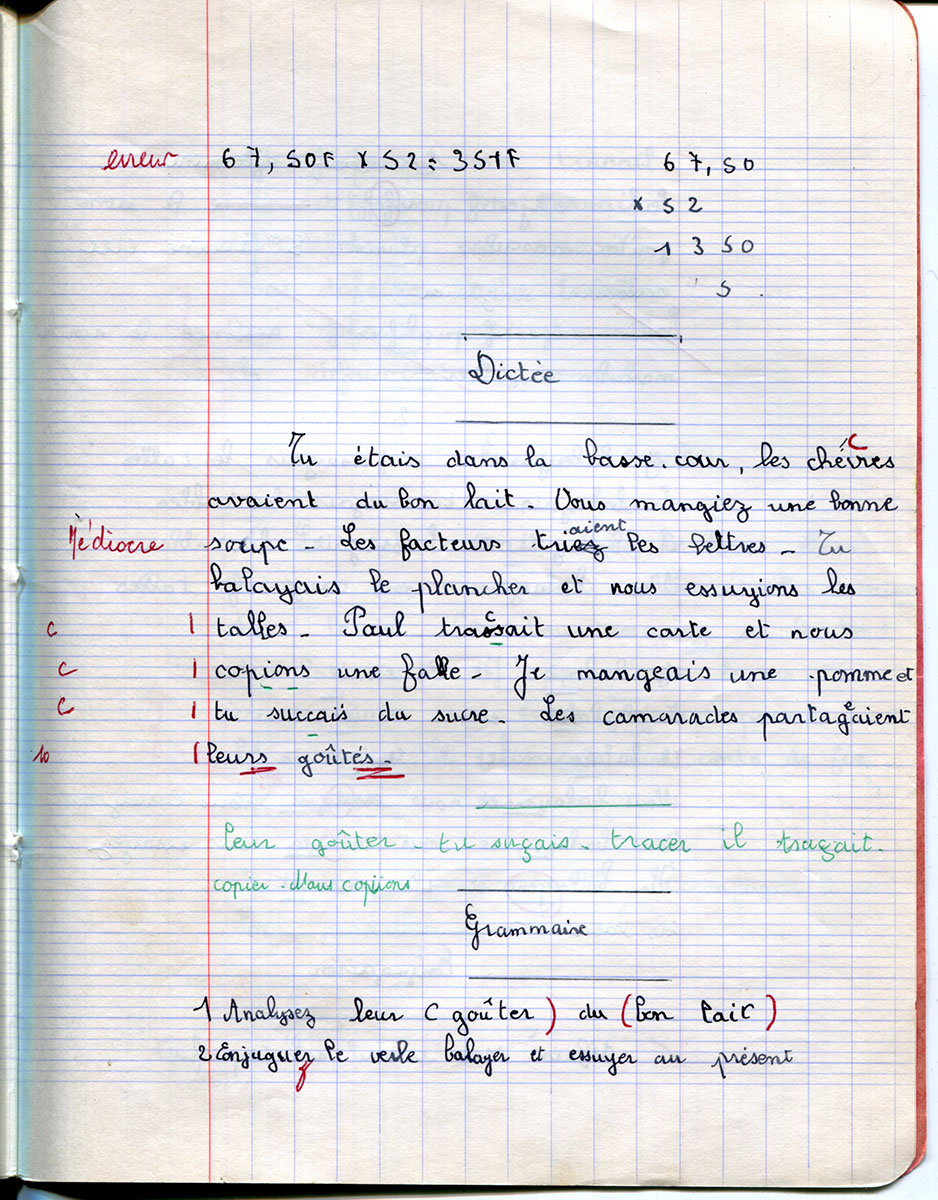 erreur 67,50F x 52 = 351F 67,50
x 52
1350
5 .
Dictée
Tu étais dans la basse.cour, les chévres
avaient du bon lait. Vous mangiez une bonne
Médiocre soupe - Les facteurs triaient les lettres - Tu
balayais le plancher et nous essuyions les
c 1 talles - Paul tracait une carte et nous
c 1 copions une falle - Je mangeais une pomme et
c 1 tu succais du sucre - Les camarades partageaient
10 1 leurs goûtés -
leur goûter - tu suçais - tracer il traçait -
copier - Nous copiions
Grammaire
1 Analysez leur (goûter) du (bon lait)
2 Conjuguez le verbe balayer et essuyer au présent